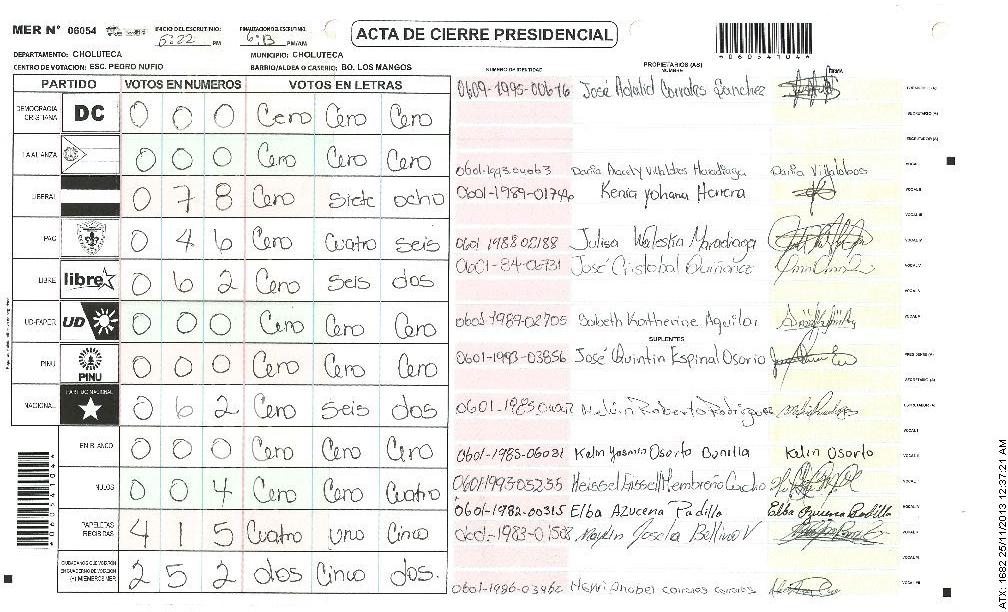 MER N° 06054 INICIO DEL ESCRUTINIO: 5:22 PM FINALIZACION DEL ESCRUTINIO: 6:13 PM/AM
ACTA DE CIERRE PRESIDENCIAL
DEPARTAMENTO: CHOLUTECA MUNICIPIO: CHOLUTECA
CENTRO DE VOTACION: ESC. PEDRO NUFIO BARRIO/ALDEA O CASERIO: BO. LOS MANGOS
PARTIDO VOTOS EN NUMEROS VOTOS EN LETRAS
DEMOCRACIA CRISTIANA DC 0 0 0 Cero Cero Cero
LA ALIANZA 0 0 0 Cero Cero Cero
LIBERAL 0 7 8 Cero siete ocho
PAC 0 4 6 Cero cuatro seis
LIBRE libre 0 6 2 Cero seis dos
UD-FAPER UD 0 0 0 Cero Cero Cero
PINU PINU 0 0 0 Cero Cero Cero
NACIONAL PARTIDO NACIONAL 0 6 2 Cero seis dos
EN BLANCO 0 0 0 Cero Cero Cero
NULOS 0 0 4 Cero Cero Cuatro
PAPELETAS RECIBIDAS 4 1 5 Cuatro uno Cinco
CIUDADANOS QUE VOTARON EN CUADERNO DE VOTACION (+) MIEMBROS MER 2 5 2 dos Cinco dos.
NUMERO DE IDENTIDAD PROPIETARIOS (AS) NOMBRE FIRMA
0609-1995-00676 José Sanchez
Daria Villalobos
0601-1989-01746 Kenia Yohana Herrera
0601 1988 02188 Julisa Waleska Maradiaga
0601-84-06731 José Cristobal
0601-1989-02705 Katherine Aguilar
SUPLENTES
0601-1993-03856 José Quintin Espinal Osorio
Roberto Rodriguez
0601-1985-06031 Kelin Yasmin Osorto Bonilla Kelin Osorto
0601199305235
0601-1982-00315 Elba Azucena Padilla Elba Azucena Padilla
Joselia
0601-1986-03462 corrales corrales
ATX: 1682 25/11/2013 12:37:21 AM